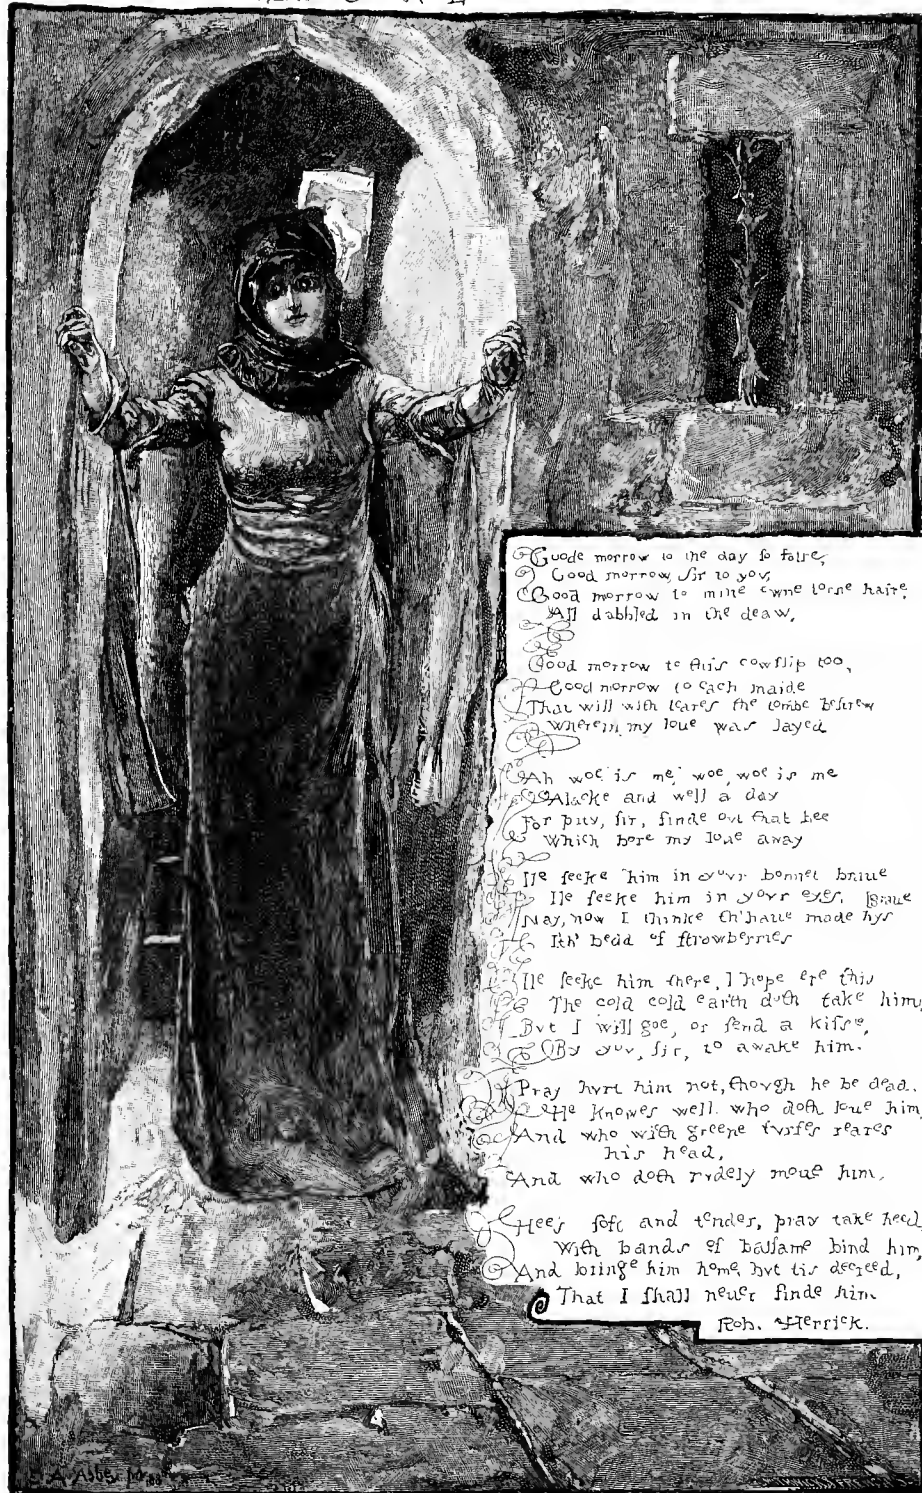 Goode morrow to the day so faire,
Good morrow, sir to yov,
Good morrow to mine owne torne haire
All dabbled in the deaw,
Good morrow to this cowslip too,
Good morrow to each maide
That will with teares the tombe bestrew
Wherein my loue was layed
Ah woe is me, woe, woe is me
Alacke and well a day
For pity, sir, finde ovt that bee
Which bore my loue away
Ile seeke him in yovr bonnet braue
Ile seeke him in yovr eyes,
Nay, now I thinke th'haue made hys graue
Ith' bedd of strowberries
Ile seeke him there, I hope ere this
The cold cold earth doth take him,
Bvt I will goe, or send a kisse,
By yov, sir, to awake him.
Pray hvrt him not, thovgh he be dead.
He knowes well who doth loue him,
And who with greene tvrfes reares
his head,
And who doth rvdely moue him,
Hee's soft and tender, pray take heed
With bands of balsame bind him,
And bringe him home, bvt tis decreed,
That I shall neuer finde him
Rob. Herrick.
E. A. Abbey